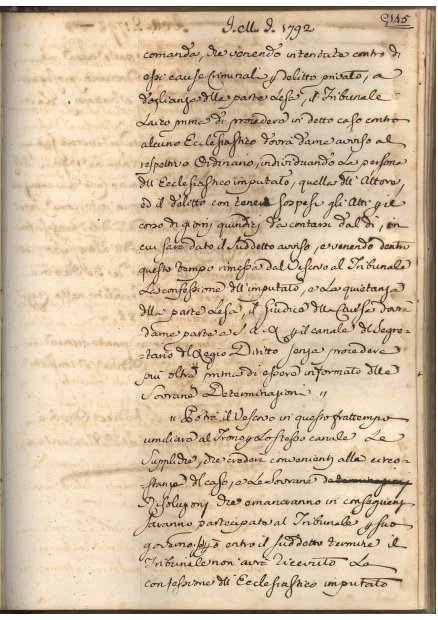 J. M. J. 1792
145
comanda, che venendo intentate contro di
essi cause Criminali p delitto privato, a
doglianza dlla parte Lesa, il Tribunale
Laico prima di procedere in detto caso contro
alcuno Ecclesiastico dovrà darne avviso al
respettivo Ordinario, individuando La persona
dll Ecclesiastico imputato, quella dll Attore,
ed il delitto con tenere sospesi gli Atti p il
corso di giorni quindici da contarsi dal dì, in
cui sarà dato il suddetto avviso, e venendo dentro
questo tempo rimessa dal Vescovo al Tribunale
La confessione dll imputato, o La quietanza
dlla parte Lesa, il Giudice dlla Causa dovrà
darne parte a S. A. R. p il canale dl Segre-
tario dl Regio Diritto senza procedere
più oltre prima di essere informato dlle
Sovrane Determinazioni "
" Potrà il Vescovo in questo frattempo
umiliare al Trono p Lo stesso canale Le
Suppliche, che crederà convenienti alle circo-
stanze dl caso, e Le Sovrane determinazioni
Risoluzioni che emaneranno in conseguenza
saranno partecipate al Tribunale p suo
governo entro il suddetto termine il
Tribunale non avrà ricevuto La
confessione dll Ecclesiastico imputato